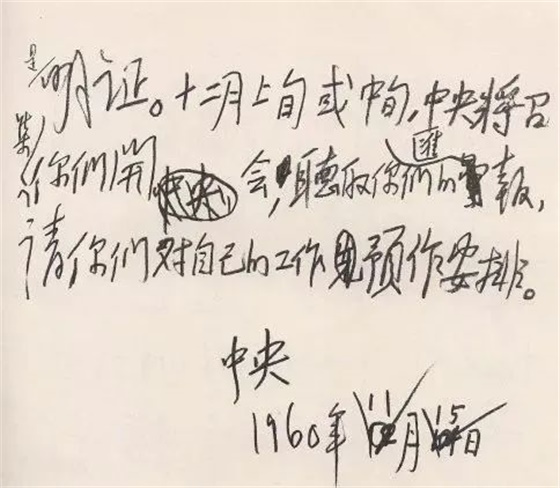 是明证。十二月上旬或中旬,中央將召
集你们開会,聽取你们的匯報,
请你们对自己的工作预作安排。
中央
1960年11月15日